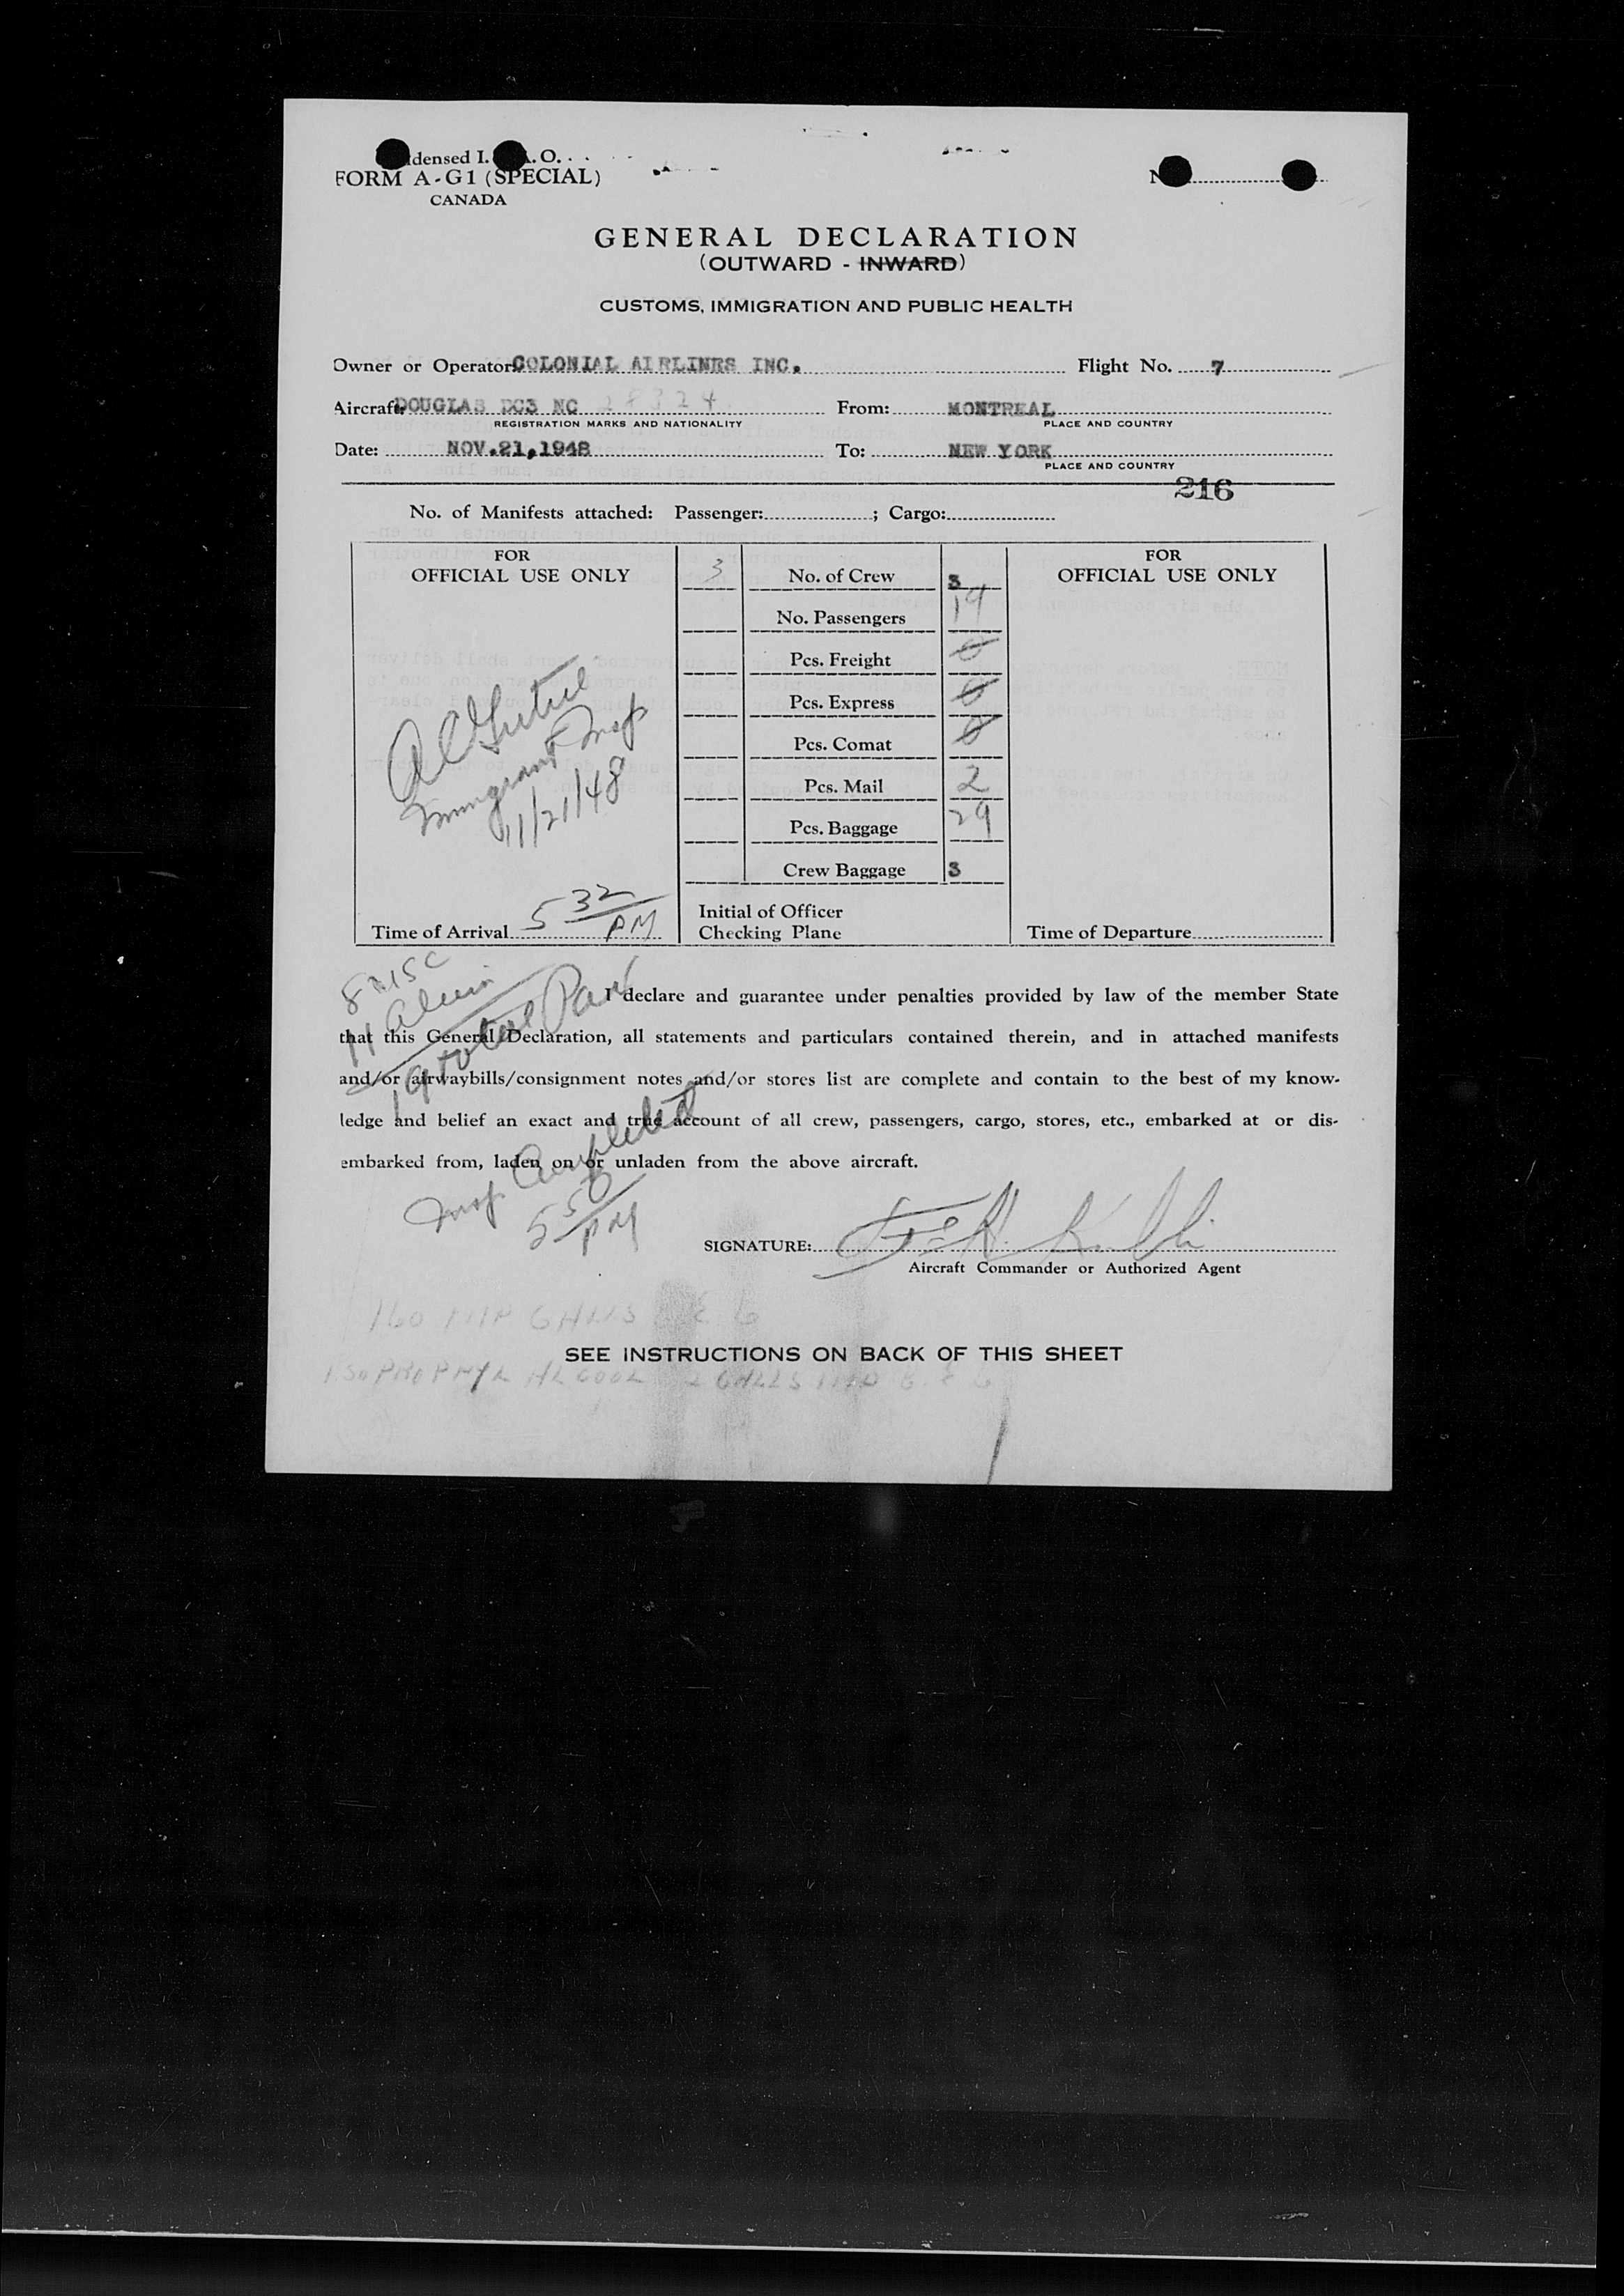 densed I. A. O.
FORM A-G1 (SPECIAL)
CANADA
N
GENERAL DECLARATION
(OUTWARD - INWARD)
CUSTOMS, IMMIGRATION AND PUBLIC HEALTH
Owner or Operator: COLONIAL AIRLINES INC. Flight No. 7
Aircraft: DOUGLAS DC3 NC 28324 From: MONTREAL
REGISTRATION MARKS AND NATIONALITY PLACE AND COUNTRY
Date: NOV.21,1948 To: NEW YORK
PLACE AND COUNTRY
216
No. of Manifests attached: Passenger: ; Cargo:
FOR OFFICIAL USE ONLY
3 No. of Crew 3
No. Passengers 19
Pcs. Freight 0
Pcs. Express 0
Pcs. Comat 0
Pcs. Mail 2
Pcs. Baggage 29
Crew Baggage 3
FOR OFFICIAL USE ONLY
Immigrant Insp
11/21/48
Time of Arrival 5 32 PM
Initial of Officer
Checking Plane
Time of Departure
8 USC
11 Alien
19 total Pass
I declare and guarantee under penalties provided by law of the member State
that this General Declaration, all statements and particulars contained therein, and in attached manifests
and/or airwaybills/consignment notes and/or stores list are complete and contain to the best of my know-
ledge and belief an exact and true account of all crew, passengers, cargo, stores, etc., embarked at or dis-
embarked from, laden on or unladen from the above aircraft.
Insp. Completed
5 50 PM
SIGNATURE:
Aircraft Commander or Authorized Agent
SEE INSTRUCTIONS ON BACK OF THIS SHEET